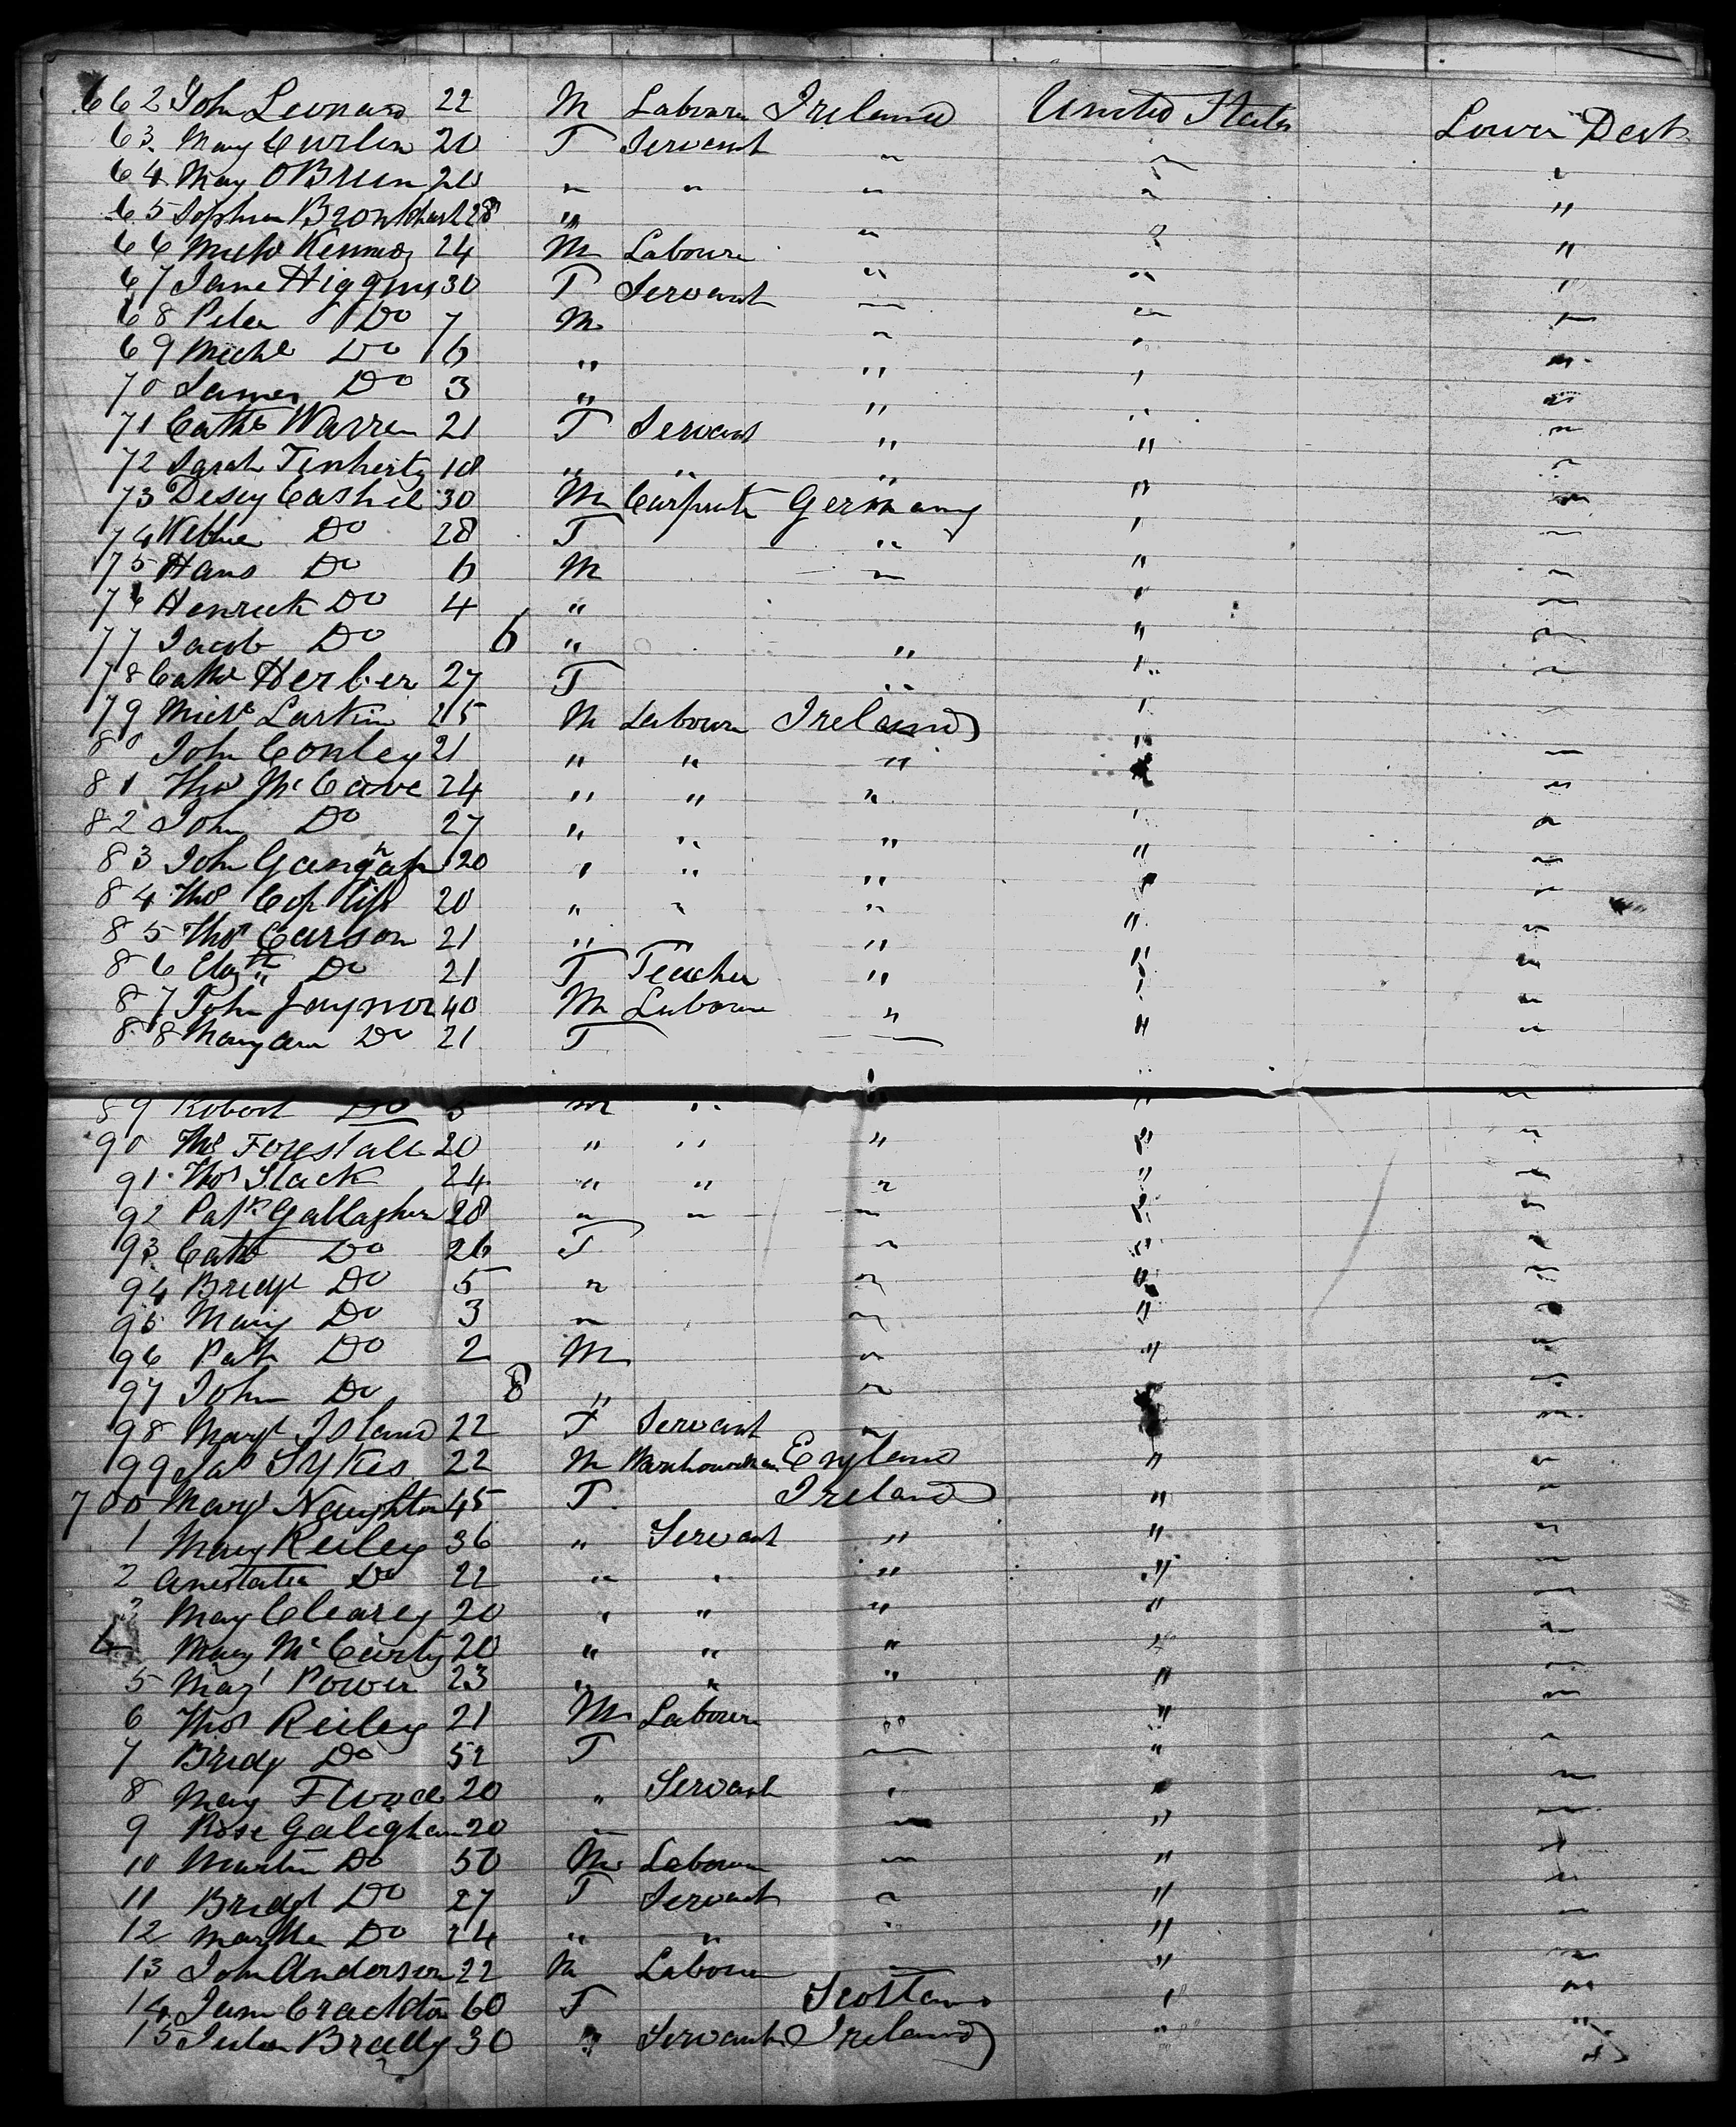 662 John Leonard 22 M Labourer Ireland United States Lower Deck
63. Mary Curlin 20 F Servant " " "
64 Mary OBrien 20 " " " " "
65 Sophia 28 " " " "
66 Michl Kennedy 24 M Labourer " " "
67 Jane Higgins 30 F Servant " " "
68 Peter Do 7 M " " "
69 Michl Do 6 " " " "
70 James Do 3 " " " "
71 Cathe Warren 21 F Servant " " "
72 Sarah 18 " " " " "
73 Cashil 30 M Carpenter Germany " "
74 Do 28 F " " "
75 Hans Do 6 M " " "
76 Henrick Do 4 " " "
77 Jacob Do 6 " " " "
78 Cathe Herber 27 F " " "
79 Michl Larkin 25 M Labourer Ireland " "
80 John Conley 21 " " " " "
81 Thos McCave 24 " " " " "
82 John Do 27 " " " " "
83 John 20 " " " " "
84 Thos 20 " " " " "
85 Thos Carson 21 " " " " "
86 Elizth Do 21 F Teacher " " "
87 John 40 M Labourer " " "
88 Mary ann Do 21 F " " "
89 Robert Do 5 M " " " "
90 Forestall 20 " " " " "
91 Thos Slack 24 " " " " "
92 Patk Gallagher 28 " " " " "
93 Cathe Do 26 F " " "
94 Bridgt Do 5 " " " "
95 Mary Do 3 " " " "
96 Patk Do 2 M " " "
97 John Do 8 " " " "
98 Margt 22 F Servant " " "
99 Jas Sykes 22 M Warehouseman England " "
700 Margt Naughton 45 F. Ireland " "
1 Mary Reiley 36 " Servant " " "
2 Anestatia Do 22 " " " " "
3 Mary Cleary 20 " " " " "
4 Mary McCurty 20 " " " " "
5 Magt Power 23 " " " " "
6 Thos Reiley 21 M Labourer " " "
7 Bridgt Do 52 F " " "
8 Mary 20 " Servant " " "
9 Rose Galigham 20 " " " "
10 Martin Do 50 M Labourer " " "
11 Bridgt Do 27 F Servant " " "
12 Martha Do 24 " " " " "
13 John Anderson 22 M Labourer " " "
14 Crackton 60 F Scotland " "
15 Julia 30 " Servant Ireland " "